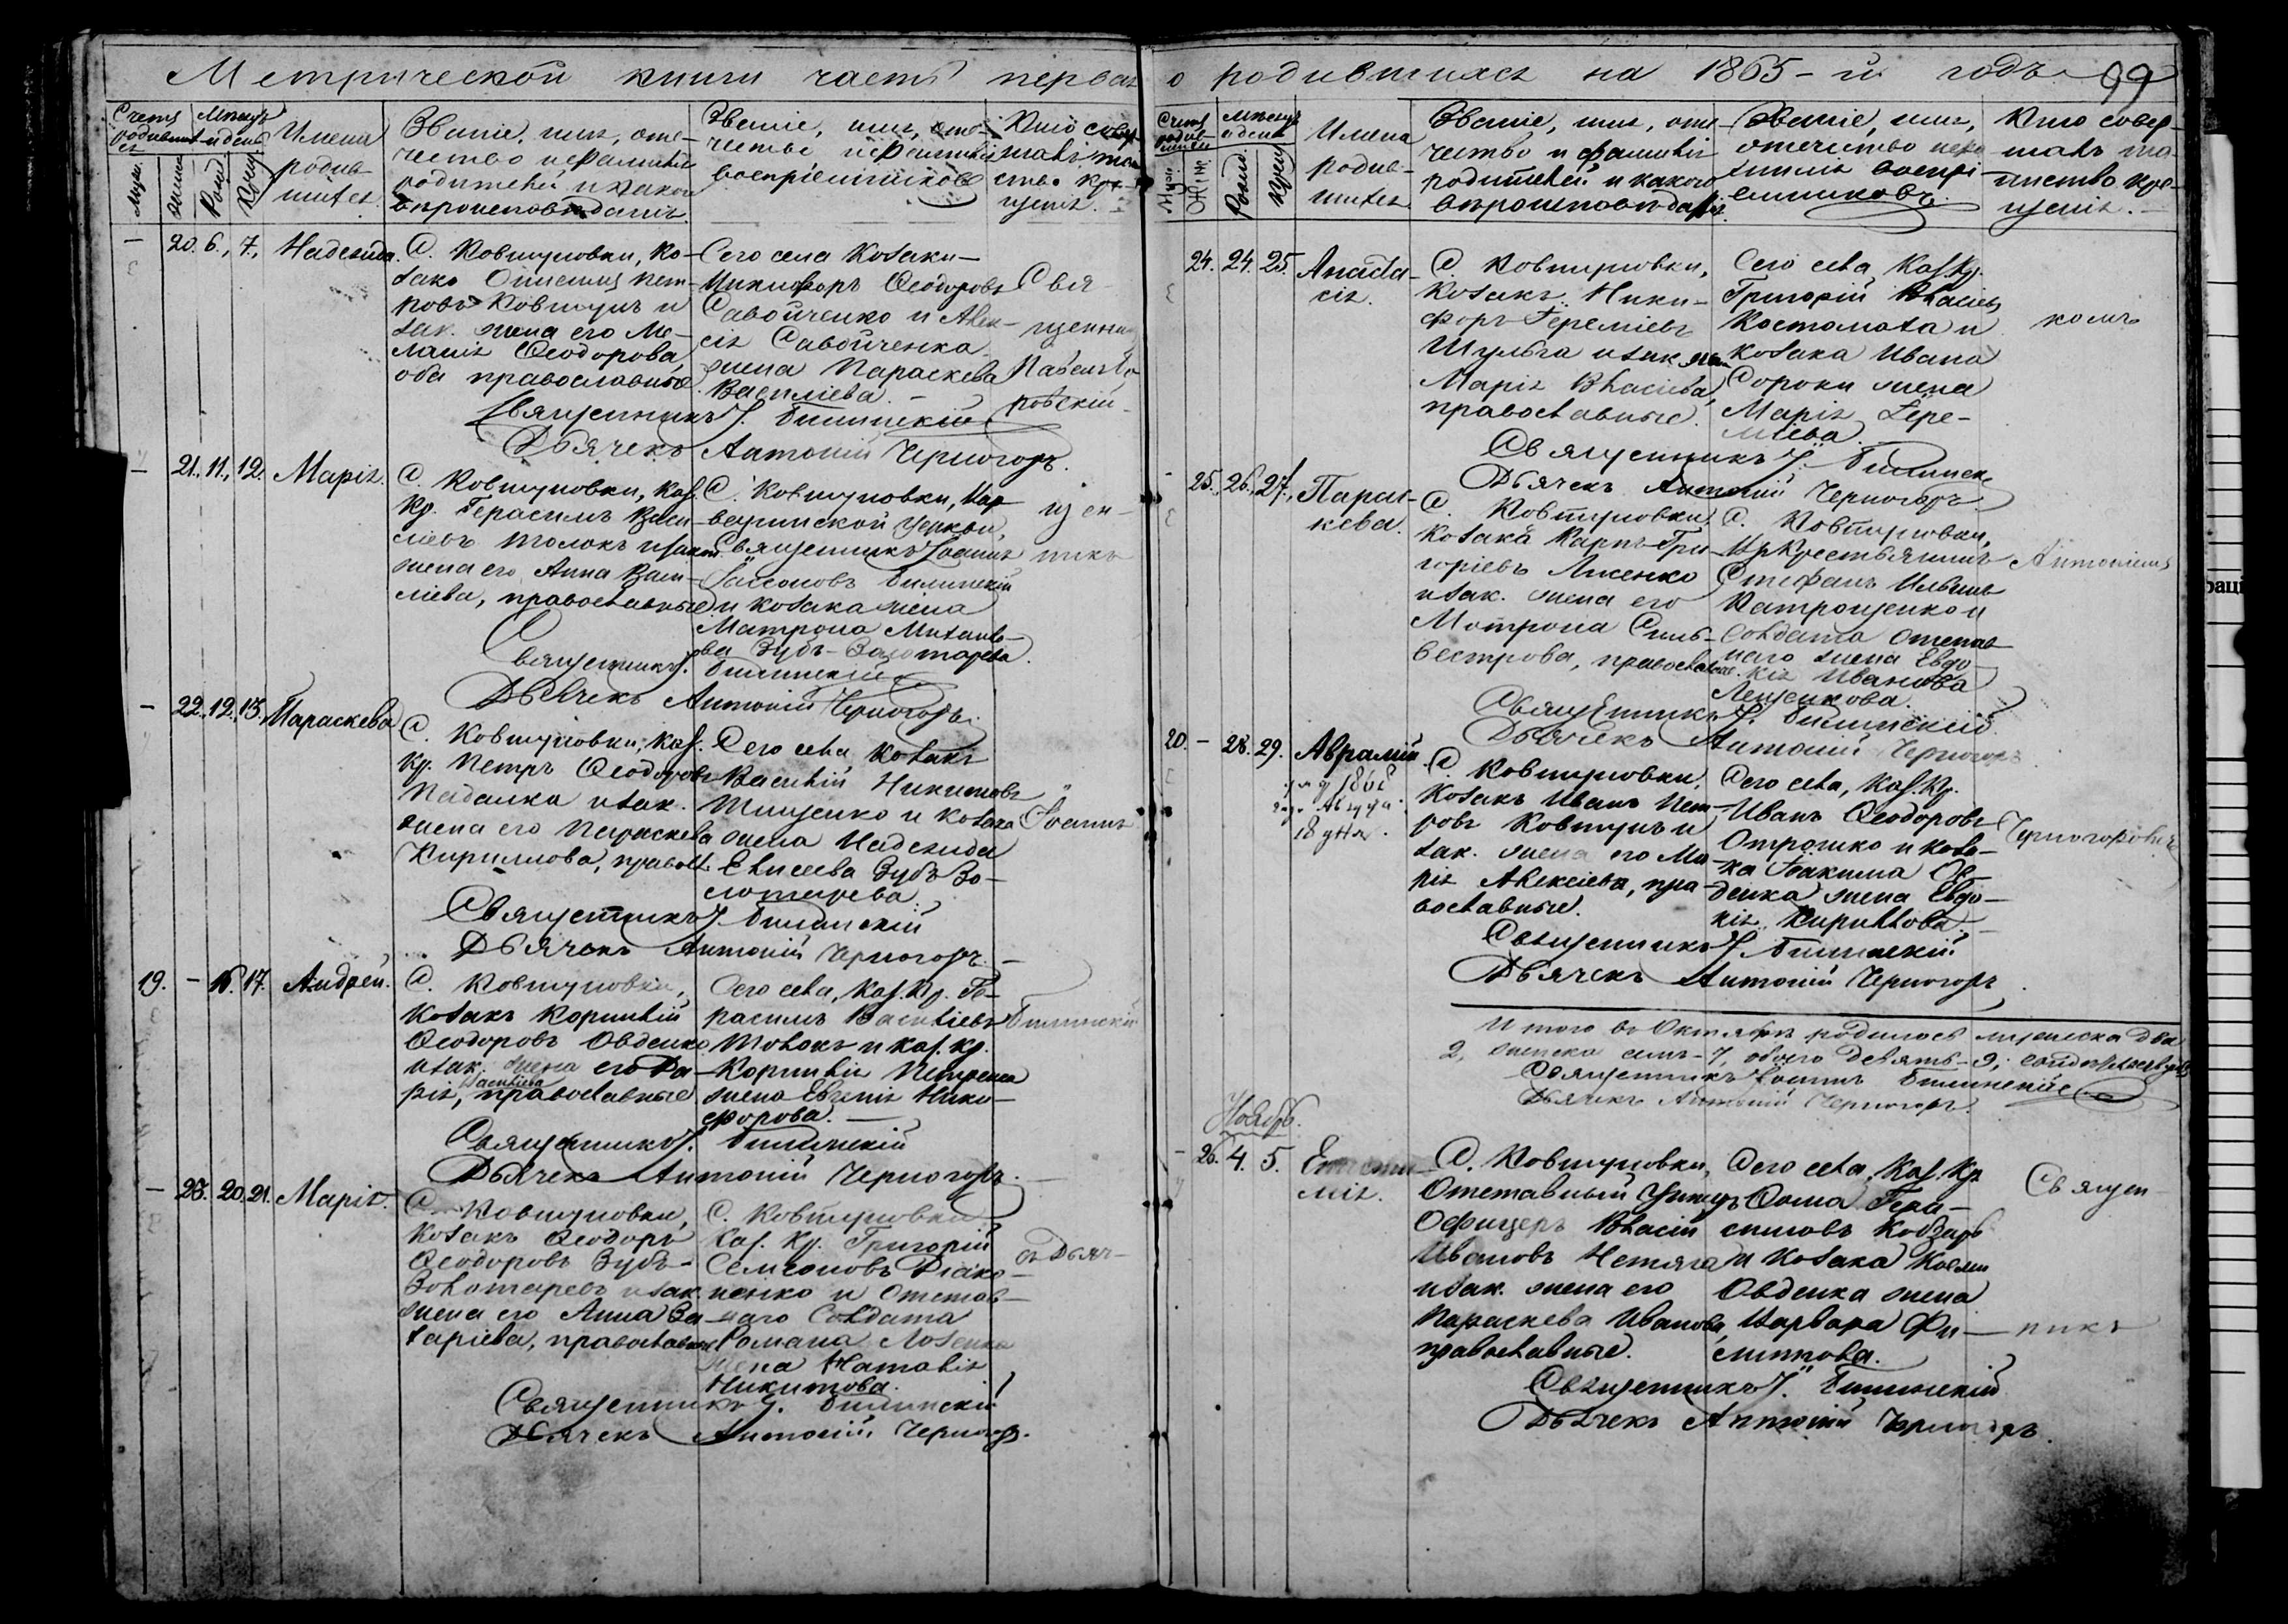 Метрической книги часть первая
Счетъ родившихся
Мѣсяцъ и день
Муж.
Женс.
Рожд.
Крещ.
Имена родив-
шихся.
Званіе, имя, оте-
чество и фамилія
родителей и какого
вѣроисповѣданія.
Званіе, имя, оте-
чество, и фамилія
воспріемниковъ
Кто совер-
шалъ таин-
ство кре-
щенія.
— 20. 6., 7., Надежда.
С. Ковтуновки, ко-
закъ
ровъ Ковтунъ и
зак. жена его Ме-
ланія Ѳеодорова,
оба православные
Сего села козаки —
Никифоръ Ѳеодоровъ
Савойченко и Алек-
сія Савойченка
жена Параскева
Василіева. —
Свя-
щенни
Священникъ І. Билинскій
Дьячекъ Антоній Черногоръ.
— 21. 11., 12. Марія.
С. Ковтуновки, Каз.
Кр. Герасимъ Васи-
ліевъ Толокъ и закон.
жена его Анна Васи-
ліева, православные
С. Ковтуновки, Пар-
Священникъ Іоаннъ
Билинскій
и козака жена
Матрона Михаило-
ва Зубъ-Золотарева.
щен-
никъ
Священникъ І. Билинскій
Дьячекъ Антоній Черногоръ.
— 22. 12. 13. Параскева
С. Ковтуновки, Каз.
Кр. Петръ Ѳеодоровъ
Падалка и зак.
жена его Параскева
Кириллова, правосл.
Сего села козакъ
Василій Никитовъ
Тищенко и козака
жена Надежида
Елисеева Зубъ Зо-
лотарева.
Іоаннъ
Священникъ І. Билинскій
Дьячекъ Антоній Черногоръ. —
19. — 16. 17. Андрей.
С. Ковтуновки,
Козакъ Корнилій
Ѳеодоровъ Овденко
и зак. жена его Да-
рія Василіева, православные
Сего села, Каз. Кр. Ге-
расимъ Василіевъ
Толокъ и Каз. Кр.
Корнилія Петренка
жена Евгенія Ники-
форова. —
Билинскій
Священникъ І. Билинскій
Дьячекъ Антоній Черногоръ.
— 23. 20. 21. Марія.
С. Ковтуновки,
Козакъ Ѳеодоръ
Ѳеодоровъ Зубъ-
Золотаревъ и зак.
жена его Анна За-
харіева, православные
С. Ковтуновки
Каз. Кр. Григорій
Семеоновъ Діако-
ненко и Отстав-
наго Солдата
Романа Лозенка
жена Наталія
Никитова.
съ Дьяч-
Священникъ І. Билинскій
Дьячекъ Антоній Черногор.
о родившихся на 1865-й годъ 99
Счетъ родив-
шихся
Мѣсяцъ и день
Рожд.
Крещ.
Имена
родив-
шихся
Званіе, имя, оте-
чество и фамилія
родителей и какого
вѣроисповѣданія.
Званіе, имя,
отечество и фа-
милія воспрі-
емниковъ.
Кто совер-
шалъ та-
инство кре-
щенія. —
24. 24. 25. Анаста-
сія.
С. Ковтуновки,
Козакъ Ники-
форъ Гереміевъ
Шульга и зак. жена
Марія Власіева,
православные.
Сего села, Каз. Кр.
Григорій Власіевъ
Костомаха и
козака Ивана
Сороки жена
Марія Іере-
міева.
комъ
Священникъ І. Билинск.
Дьячекъ Антоній Черногоръ.
25. 26. 27. Парас-
кева.
С. Ковтуновки,
Козакъ Карпъ Гри-
горіевъ Лисенко
и зак. жена его
Мотрона Силь-
вестрова, православные.
С. Ковтуновки,
Стефанъ Ильинъ
Катрощенко и
Солдата отстав-
наго жена Евдо-
кія Иванова
Лещенкова.
Антоніемъ
Священникъ І. Билинскій
Дьячекъ Антоній Черногоръ
20. — 28. 29. Аврамій
18 дня.
С. Ковтуновки,
Козакъ Иванъ Пет-
ровъ Ковтунъ и
зак. жена его Ма-
рія Алексіева, пра-
вославные.
Сего села, Каз. Кр.
Иванъ Ѳеодоровъ
Отрошко и коза-
ка Іоакима Ов-
денка жена Евдо-
кія Кириллова. —
Черногоровымъ
Священникъ І. Билинскій
Дьячекъ Антоній Черногоръ
Итого въ Октябрѣ родилось мужеска два
2, женска семь-7, обоего девять-9;
Священникъ Іоаннъ Билинскій
Дьячекъ Антоній Черногоръ.
Ноябрь.
— 26. 4. 5.
С. Ковтуновки,
Отставный Унтеръ
Офицеръ Власій
Ивановъ Нетяга
и зак. жена его
Параскева Иванова,
православные.
Сего села, Каз. Кр.
Ѳома Гера-
симовъ Кобзарь
и козака Косьмы
Овденка жена
Варвара Фи-
липпова.
Священ-
никъ
Священникъ І. Билинскій
Дьячекъ Антоній Черногоръ.